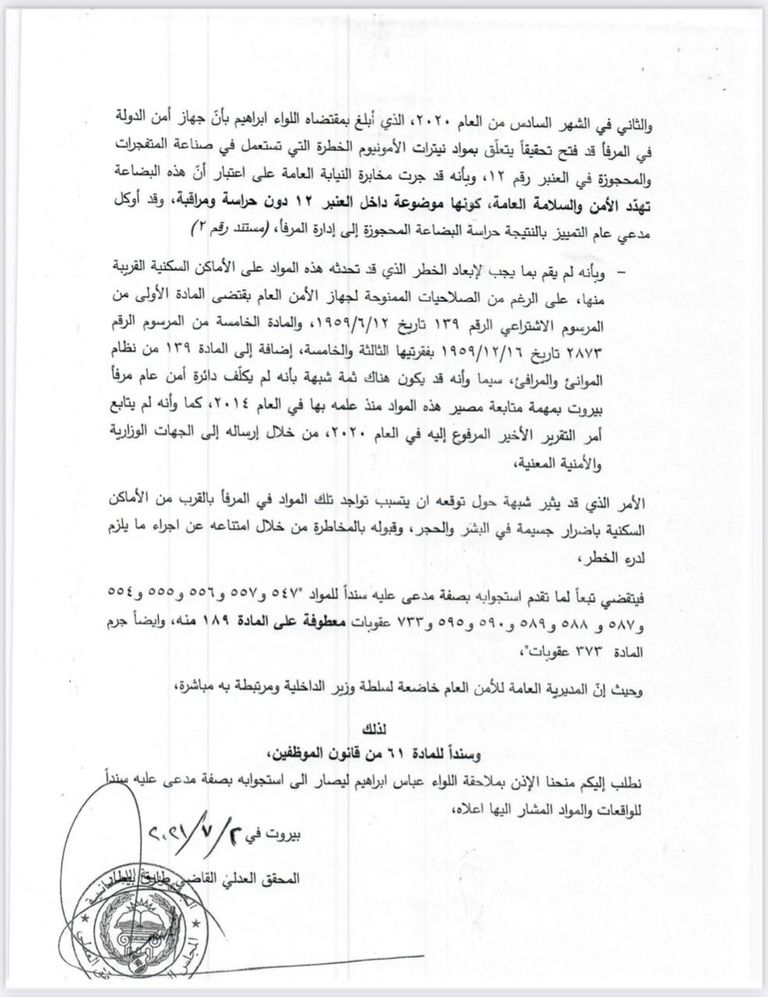 والثاني في الشهر السادس من العام ٢٠٢٠، الذي أبلغ بمقتضاه اللواء ابراهيم بأنّ جهاز أمن الدولة
في المرفأ قد فتح تحقيقاً يتعلّق بمواد نيترات الأمونيوم الخطرة التي تستعمل في صناعة المتفجرات
والمحجوزة في العنبر رقم ١٢، وبأنه قد جرت مخابرة النيابة العامة على اعتبار أنّ هذه البضاعة
تهدّد الأمن والسلامة العامة، كونها موضوعة داخل العنبر ١٢ دون حراسة ومراقبة، وقد أوكل
مدعي عام التمييز بالنتيجة حراسة البضاعة المحجوزة إلى إدارة المرفأ، (مستند رقم ٢)
– وبأنه لم يقم بما يجب لإبعاد الخطر الذي قد تحدثه هذه المواد على الأماكن السكنية القريبة
منها، على الرغم من الصلاحيات الممنوحة لجهاز الأمن العام بقتضى المادة الأولى من
المرسوم الاشتراعي الرقم ١٣٩ تاريخ ١٩٥٩/٦/١٢، والمادة الخامسة من المرسوم الرقم
٢٨٧٣ تاريخ ١٩٥٩/١٢/١٦ بفقرتيها الثالثة والخامسة، إضافة إلى المادة ١٣٩ من نظام
الموانئ والمرافئ، سيما وأنه قد يكون هناك ثمة شبهة بأنه لم يكلّف دائرة أمن عام مرفأ
بيروت بمهمة متابعة مصير هذه المواد منذ علمه بها في العام ٢٠١٤، كما وأنه لم يتابع
أمر التقرير الأخير المرفوع إليه في العام ٢٠٢٠، من خلال إرساله إلى الجهات الوزارية
والأمنية المعنية،
الأمر الذي قد يثير شبهة حول توقعه ان يتسبب تواجد تلك المواد في المرفأ بالقرب من الأماكن
السكنية باضرار جسيمة في البشر والحجر، وقبوله بالمخاطرة من خلال امتناعه عن اجراء ما يلزم
لدرء الخطر،
فيتقضي تبعاً لما تقدم استجوابه بصفة مدعى عليه سنداً للمواد "٥٤٧ و٥٥٧ و٥٥٦ و٥٥٥ و٥٥٤
و٥٨٧ و ٥٨٨ و٥٨٩ و٥٩٠ و٥٩٥ و٧٣٣ عقوبات معطوفة على المادة ١٨٩ منه، وايضاً جرم
المادة ٣٧٣ عقوبات"،
وحيث إنّ المديرية العامة للأمن العام خاضعة لسلطة وزير الداخلية ومرتبطة به مباشرة،
لذلك
وسنداً للمادة ٦١ من قانون الموظفين،
نطلب إليكم منحنا الإذن بملاحقة اللواء عباس ابراهيم ليصار الى استجوابه بصفة مدعى عليه سنداً
للواقعات والمواد المشار اليها اعلاه،
بيروت في ٢٠٢١/٧/٢
المحقق العدلي القاضي طارق بيطار